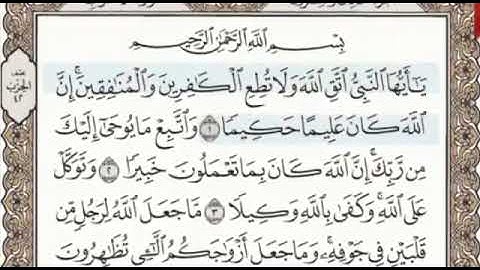 بِسْمِ اللَّهِ الرَّحْمَٰنِ الرَّحِيمِ
يَٰٓأَيُّهَا ٱلنَّبِيُّ ٱتَّقِ ٱللَّهَ وَلَا تُطِعِ ٱلْكَٰفِرِينَ وَٱلْمُنَٰفِقِينَۚ إِنَّ
ٱللَّهَ كَانَ عَلِيمًا حَكِيمًا ١ وَٱتَّبِعْ مَا يُوحَىٰٓ إِلَيْكَ
مِن رَّبِّكَۚ إِنَّ ٱللَّهَ كَانَ بِمَا تَعْمَلُونَ خَبِيرًا ٢ وَتَوَكَّلْ
عَلَى ٱللَّهِۚ وَكَفَىٰ بِٱللَّهِ وَكِيلًا ٣ مَّا جَعَلَ ٱللَّهُ لِرَجُلٍ مِّن
قَلْبَيْنِ فِي جَوْفِهِۦۚ وَمَا جَعَلَ أَزْوَٰجَكُمُ ٱلَّٰٓـِٔي تُظَٰهِرُونَ
نصف
الحزب
٤٢